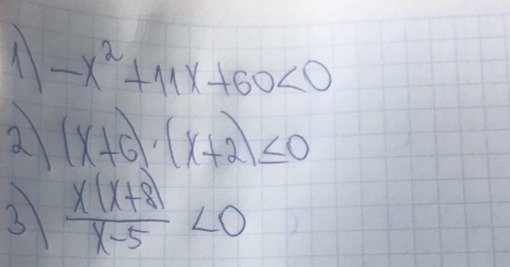 1) -x² + 11x + 60 < 0
2) (x+6)·(x+2) ≤ 0
3) x(x+8)/x-5 < 0